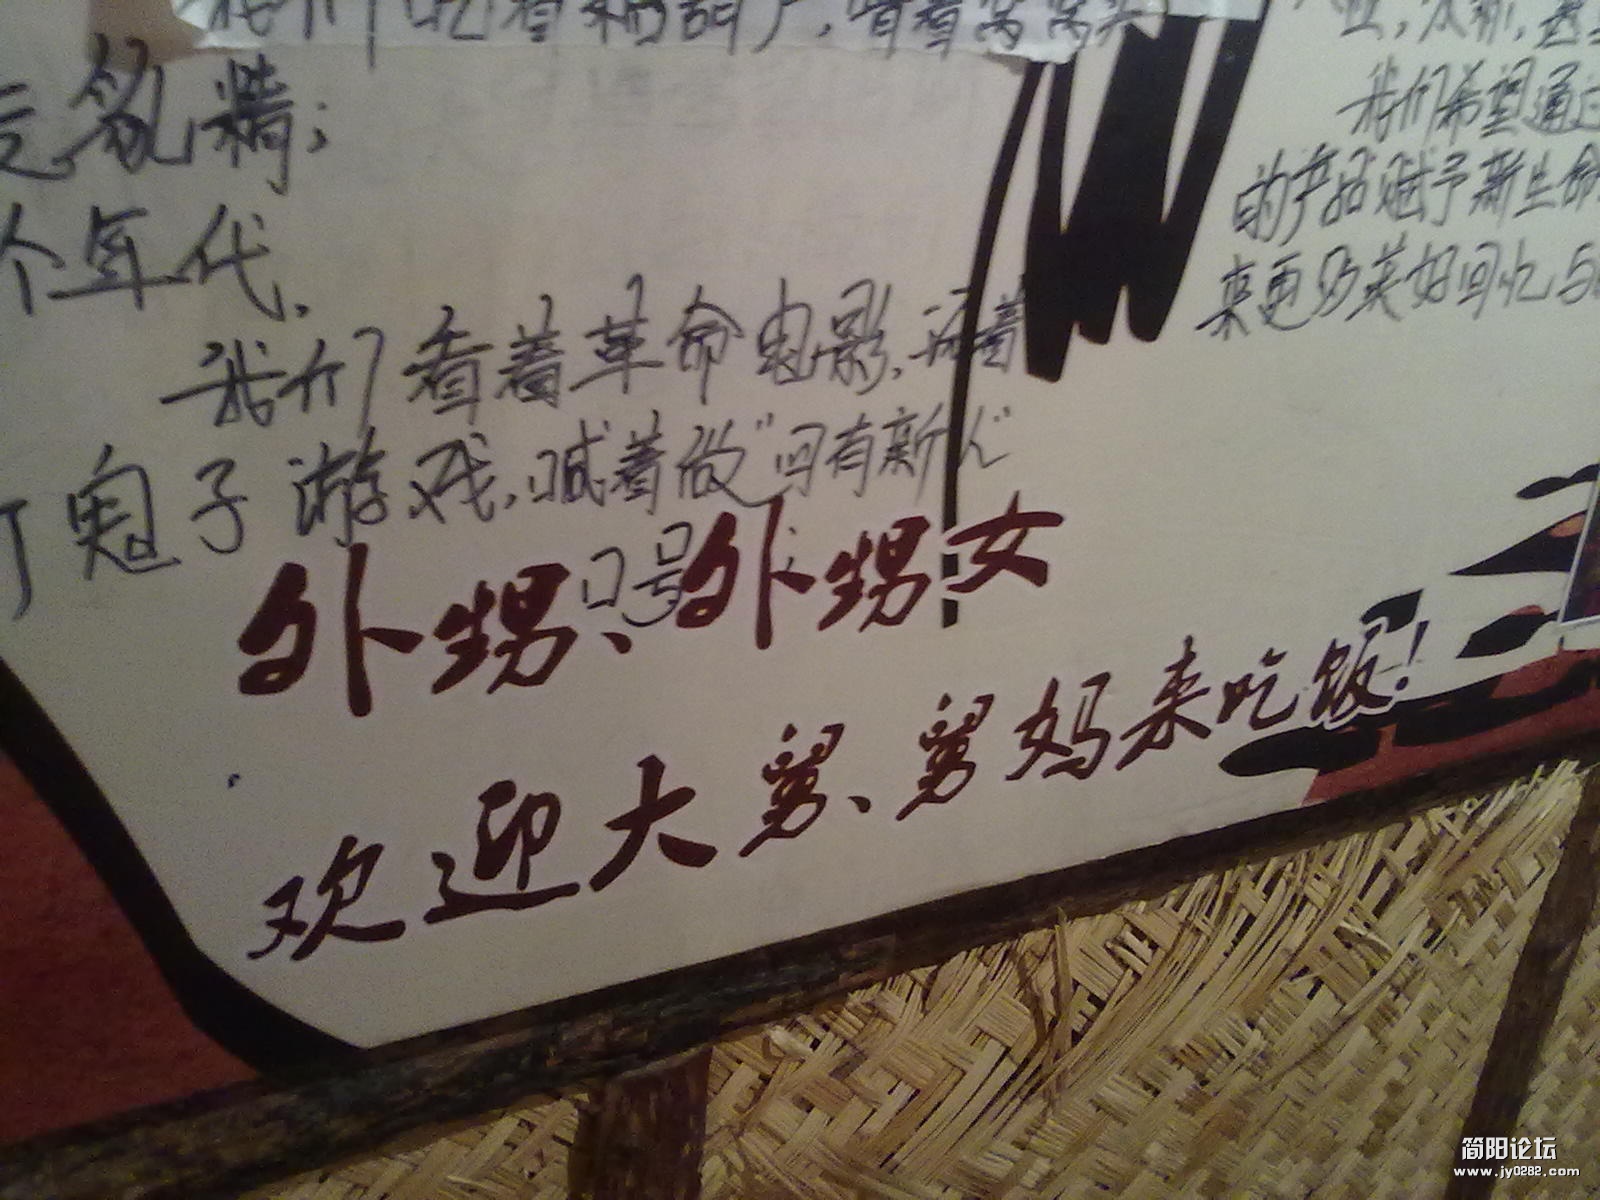 我们吃着糖葫芦,看着窝窝头
氨精;
个年代.
我们看着革命电影,玩着
打鬼子游戏,喊着做"四有新人"
口号
外甥、外甥女
欢迎大舅、舅妈来吃饭!
我们希望通过
的产品赋予新生命
来更多美好回忆与
简阳论坛
www.jy0282.com